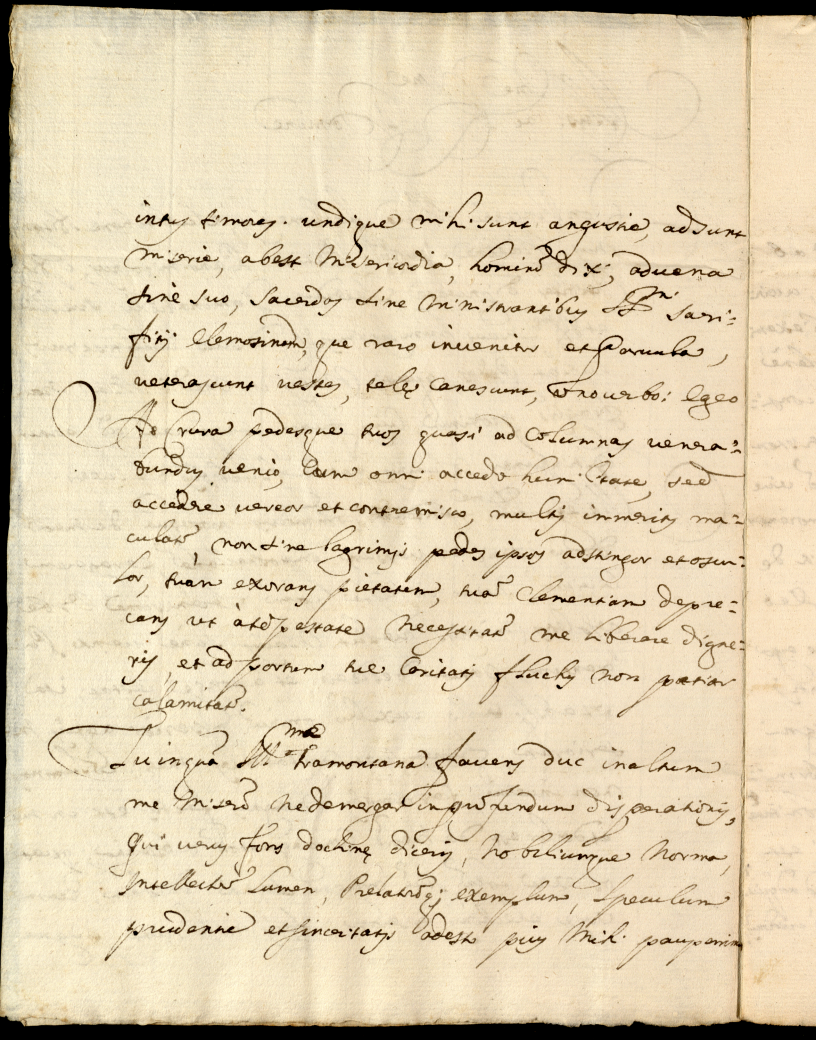 intus timores. undique mihi sunt angustie, adsunt
miserie, abest Misericordia, hominũ dixi, aduena
sine suo, Sacerdos sine Ministrantibus SSmi Sacri=
fitij Elemosinam, que raro inuenitur et Paruula,
veterascunt vestes, telę canescunt, uno verbo: Egeo
Ad Crura pedesque tuos quasi ad Columnas venera=
bundus venio, Cum omni accedo humilitate, sed
accedere vereor et contremisco, multis immeritis ma=
culatũ, non sine lagrimis pedes ipsos adstingor et oscu=
lor, tuam exorans pietatem, tuã Clementiam depre=
cans vt à tẽpestate Necessitatũ me liberare digne=
ris, et ad portum tue Caritatis fluctus non patiar
calamitatũ.
Tu inquã Illma tramontana fauens duc in altum
me Miserũ ne demergar in profundum disperationis,
Qui verus fons doctrinę diceris, Nobiliumque Norma,
Intellectũ Lumen, Prelatorũq; exemplum, Speculum
prudentie et sinceritatis adesto pius Mihi pauperrimo